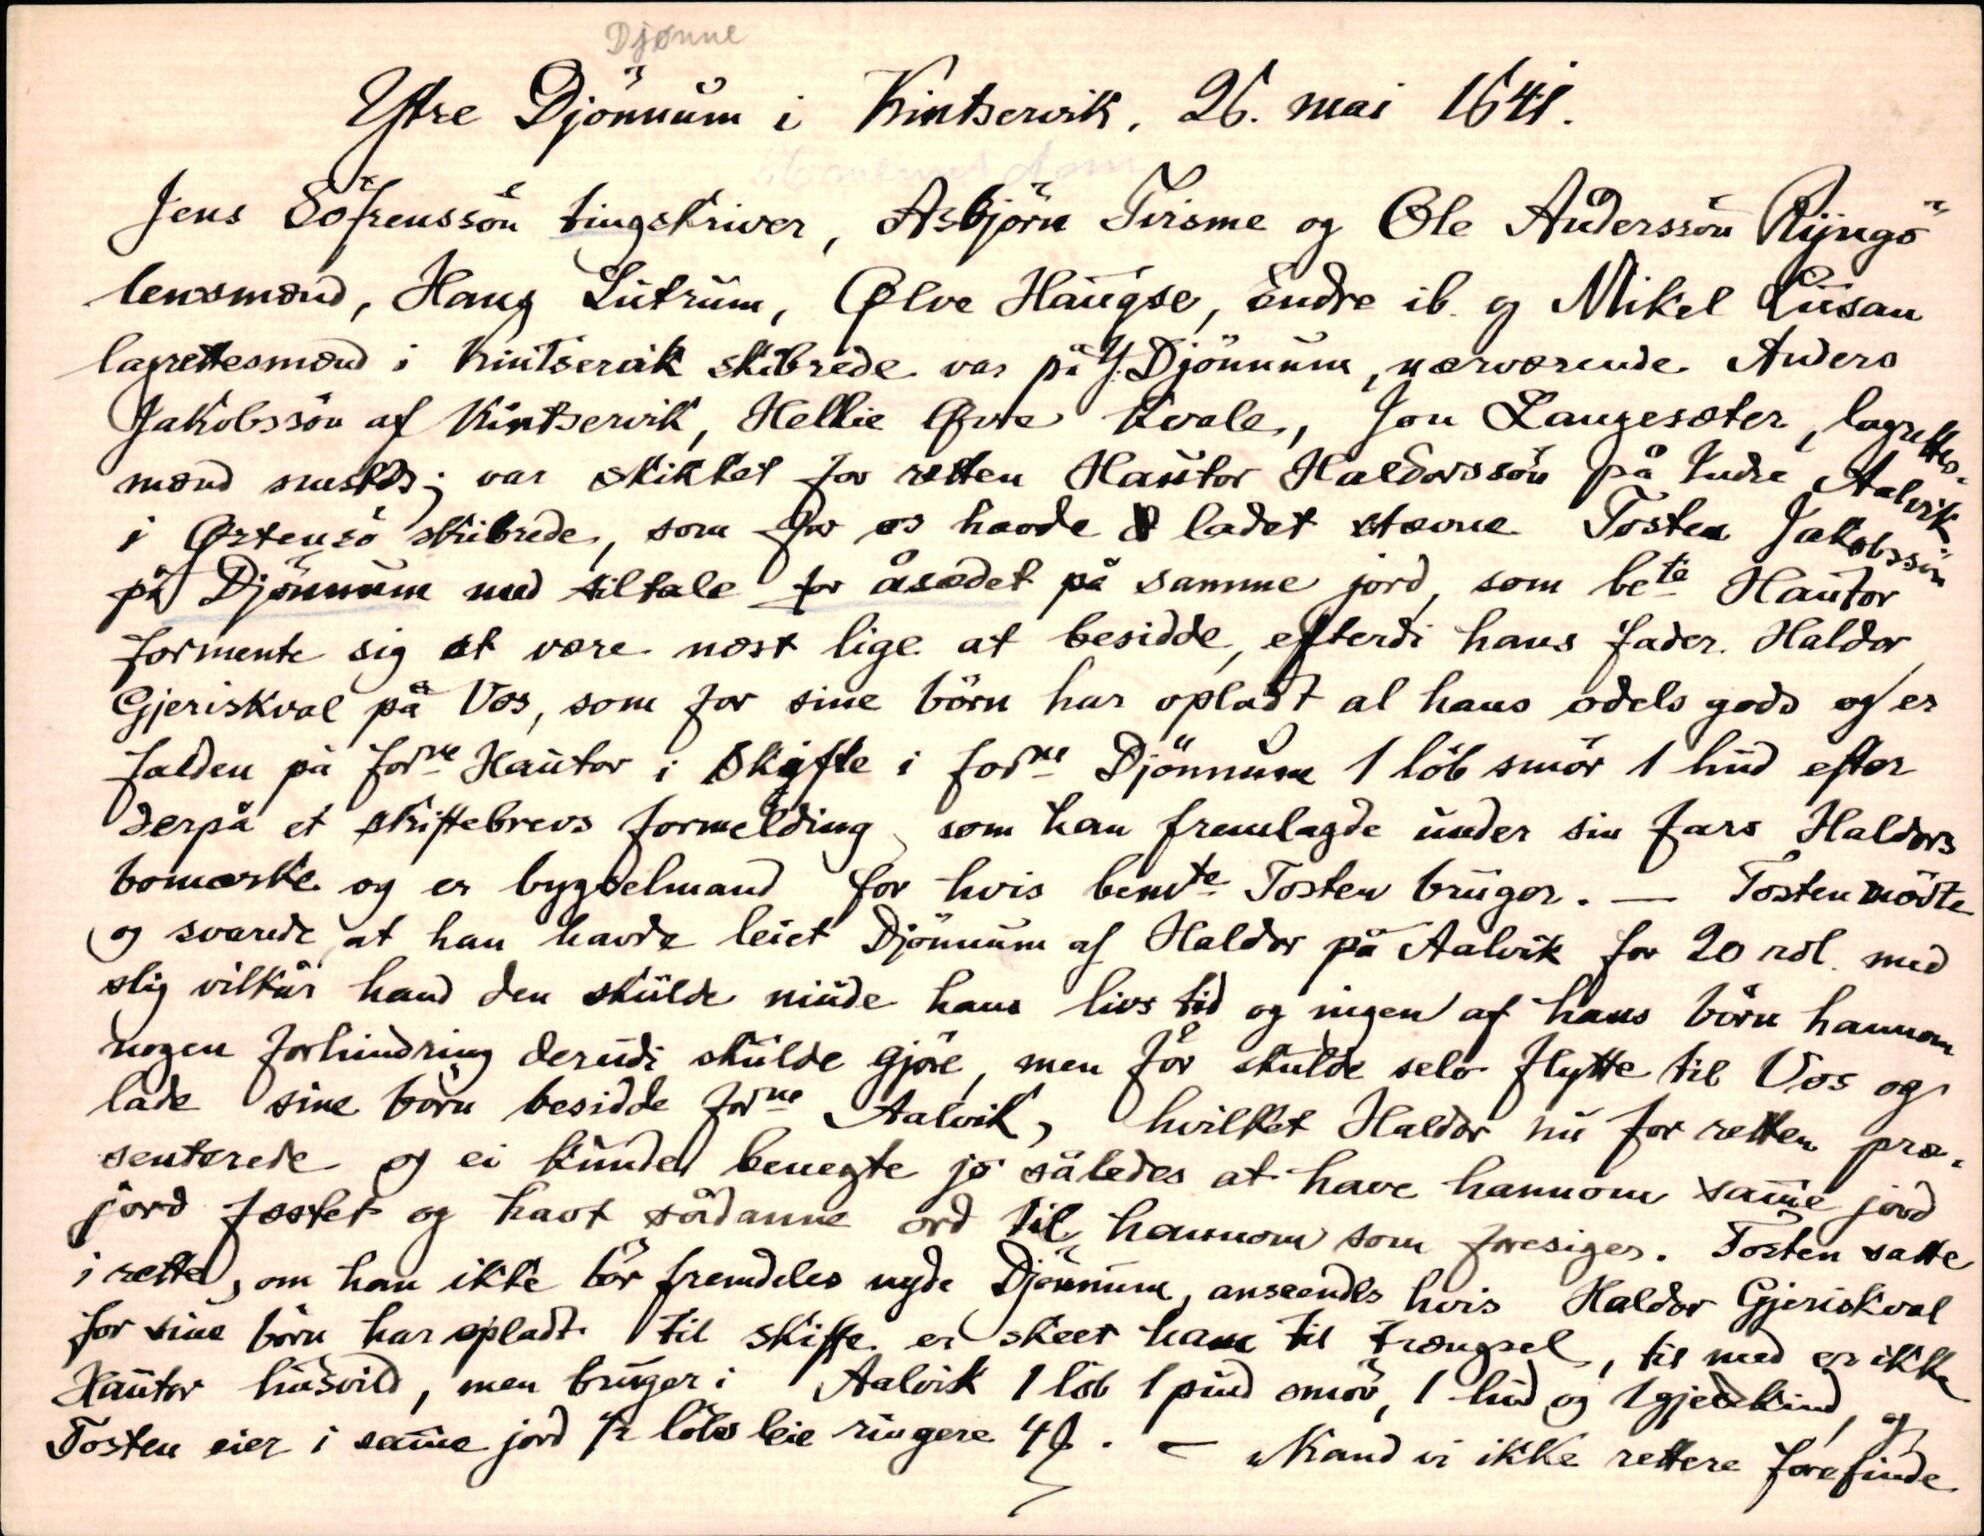 Djønne
Ytre Djönnum i Kintservik. 26. mai 1641.
Jens Söfrenssön tingskriver, Asbjörn Tvisme og Ole Anderssön Rijngö
lensmænd, Hans Lutrum, Ølve Haugse, Endre ib. og Mikel Lusan
lagrettesmænd i Kintservik skibrede var på Y. Djönnum, nærværende Anders
Jakobssön af Kintservik, Hellie Øvre Kvale, Jon Langesæter, lagrettes-
mænd smstds; var skikket for retten Hautor Haldorssön på Indre Aalvik
i Østensö skibrede, som for os havde ladet stævne Tosten Jakobssön
på Djönnum med tiltale for åsædet på samme jord, som bete Hautor
formente sig at være næst lige at besidde, efterdi hans fader Haldor
Gjeriskval på Vos, som for sine börn har opladt al hans odels gods og er
falden på forne Hautor i skifte i forne Djönnum 1 löb smör 1 hud efter
derpå et skiftebrevs formelding som han fremlagde under sin fars Haldors
bomærke og er bygselmand for hvis bemte Tosten bruger. — Tosten mödte
og svarede at han havde leiet Djönnum af Haldor på Aalvik for 20 rdl. med
slig vilkår hand den skulde niude hans livs tid og ingen af hans börn hannom
nogen forhindring derudi skulde gjöre, men för skulde selv flytte til Vos og
lade sine börn besidde forne Aalvik, hvilket Haldor nu for retten præ-
senterede og ei kunde benegte jo således at have hannom samme jord
jord fæstet og havt sådanne ord til hannom som foresiges. Tosten satte
i rette, om han ikke bör fremdeles nyde Djönnum, anseendes hvis Haldor Gjeriskval
for sine börn har opladt til skifte er skeet ham til trængsel, til med er ikke
Hautor husvild, men bruger i Aalvik 1 löb 1 pund smör, 1 hud og 1 gjedskind, og
Tosten eier i samme jord ½ löbs leie ringere 4 β. — Kand vi ikke rettere forefinde